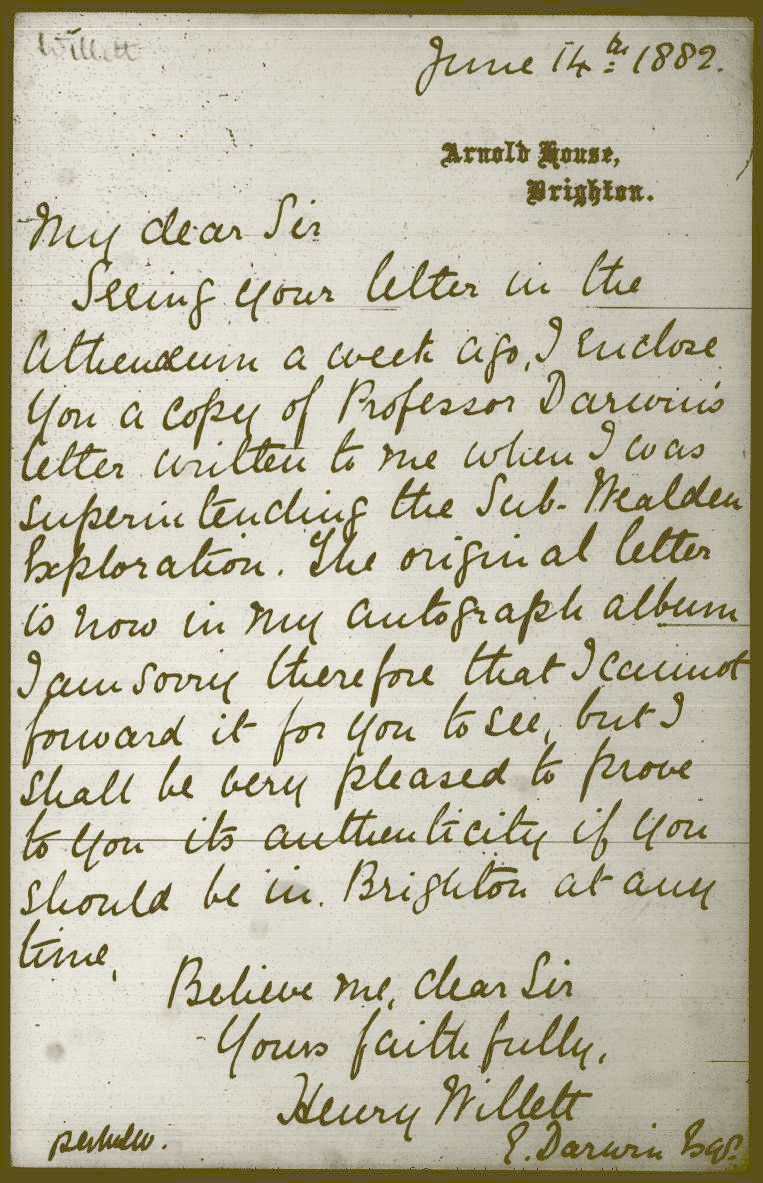 Willett
June 14th 1882.
Arnold House,
Brighton.
My dear Sir
Seeing your letter in the
Athenæum a week ago, I enclose
you a copy of Professor Darwin's
letter written to me when I was
superintending the Sub-Wealden
Exploration. The original letter
is now in my autograph album
I am sorry therefore that I cannot
forward it for you to see, but I
shall be very pleased to prove
to you its authenticity if you
should be in. Brighton at any
time.
Believe me, dear Sir
Yours faithfully,
Henry Willett
E. Darwin Esqr.